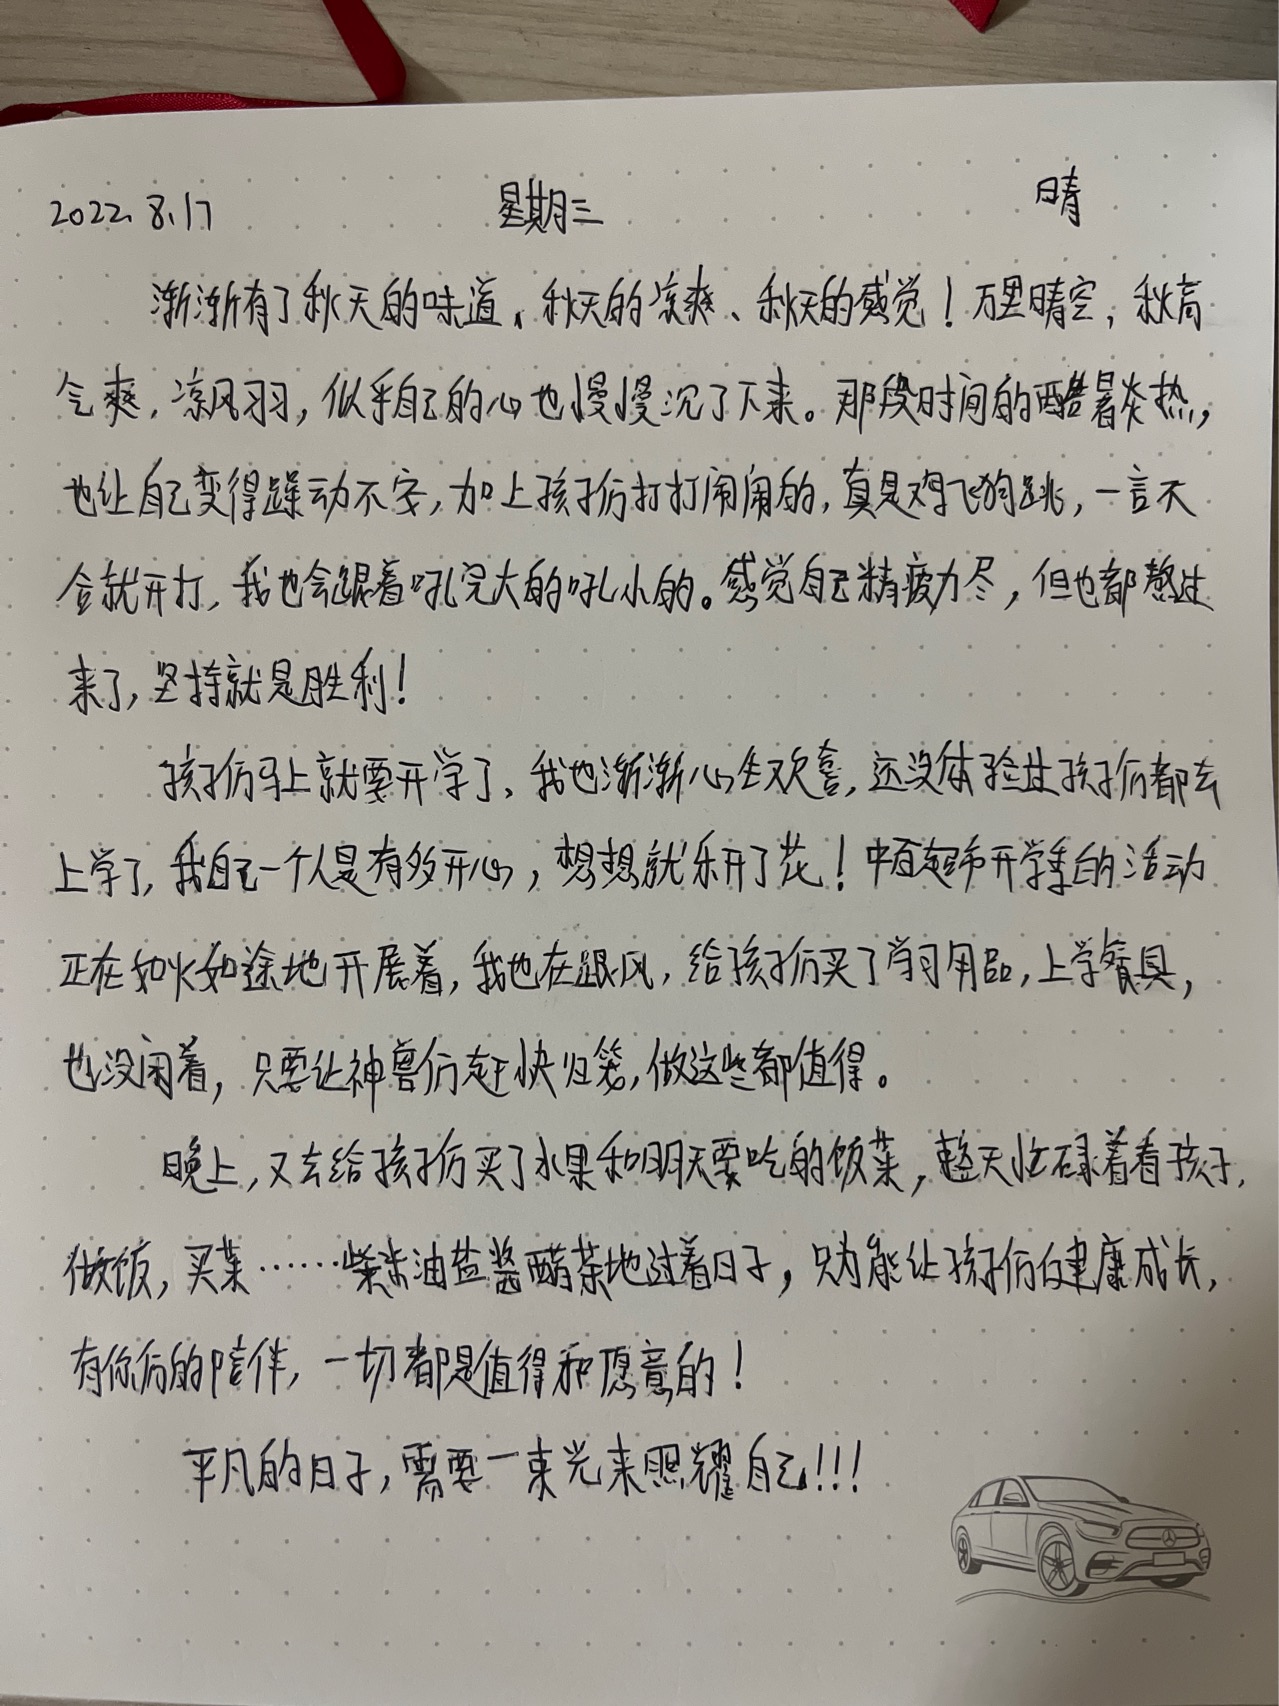 2022.8.17 星期三 晴
渐渐有了秋天的味道、秋天的凉爽、秋天的感觉！万里晴空，秋高
气爽，凉风习习，似乎自己的心也慢慢沉了下来。那段时间的酷暑炎热，
也让自己变得躁动不安，加上孩子们打打闹闹的，真是鸡飞狗跳，一言不
合就开打，我也会跟着吼完大的吼小的。感觉自己精疲力尽，但也都熬过
来了，坚持就是胜利！
孩子们马上就要开学了，我也渐渐心生欢喜，还没体验过孩子们都去
上学了，我自己一个人是有多开心，想想就乐开了花！中百超市开学季的活动
正在如火如途地开展着，我也在跟风，给孩子们买了学习用品，上学餐具，
也没闲着，只要让神兽们赶快归笼，做这些都值得。
晚上，又去给孩子们买了水果和明天要吃的饭菜，整天忙碌着看孩子，
做饭，买菜……柴米油盐酱醋茶地过着日子，只为能让孩子们健康成长，
有你们的陪伴，一切都是值得和愿意的！
平凡的日子，需要一束光来照耀自己!!!